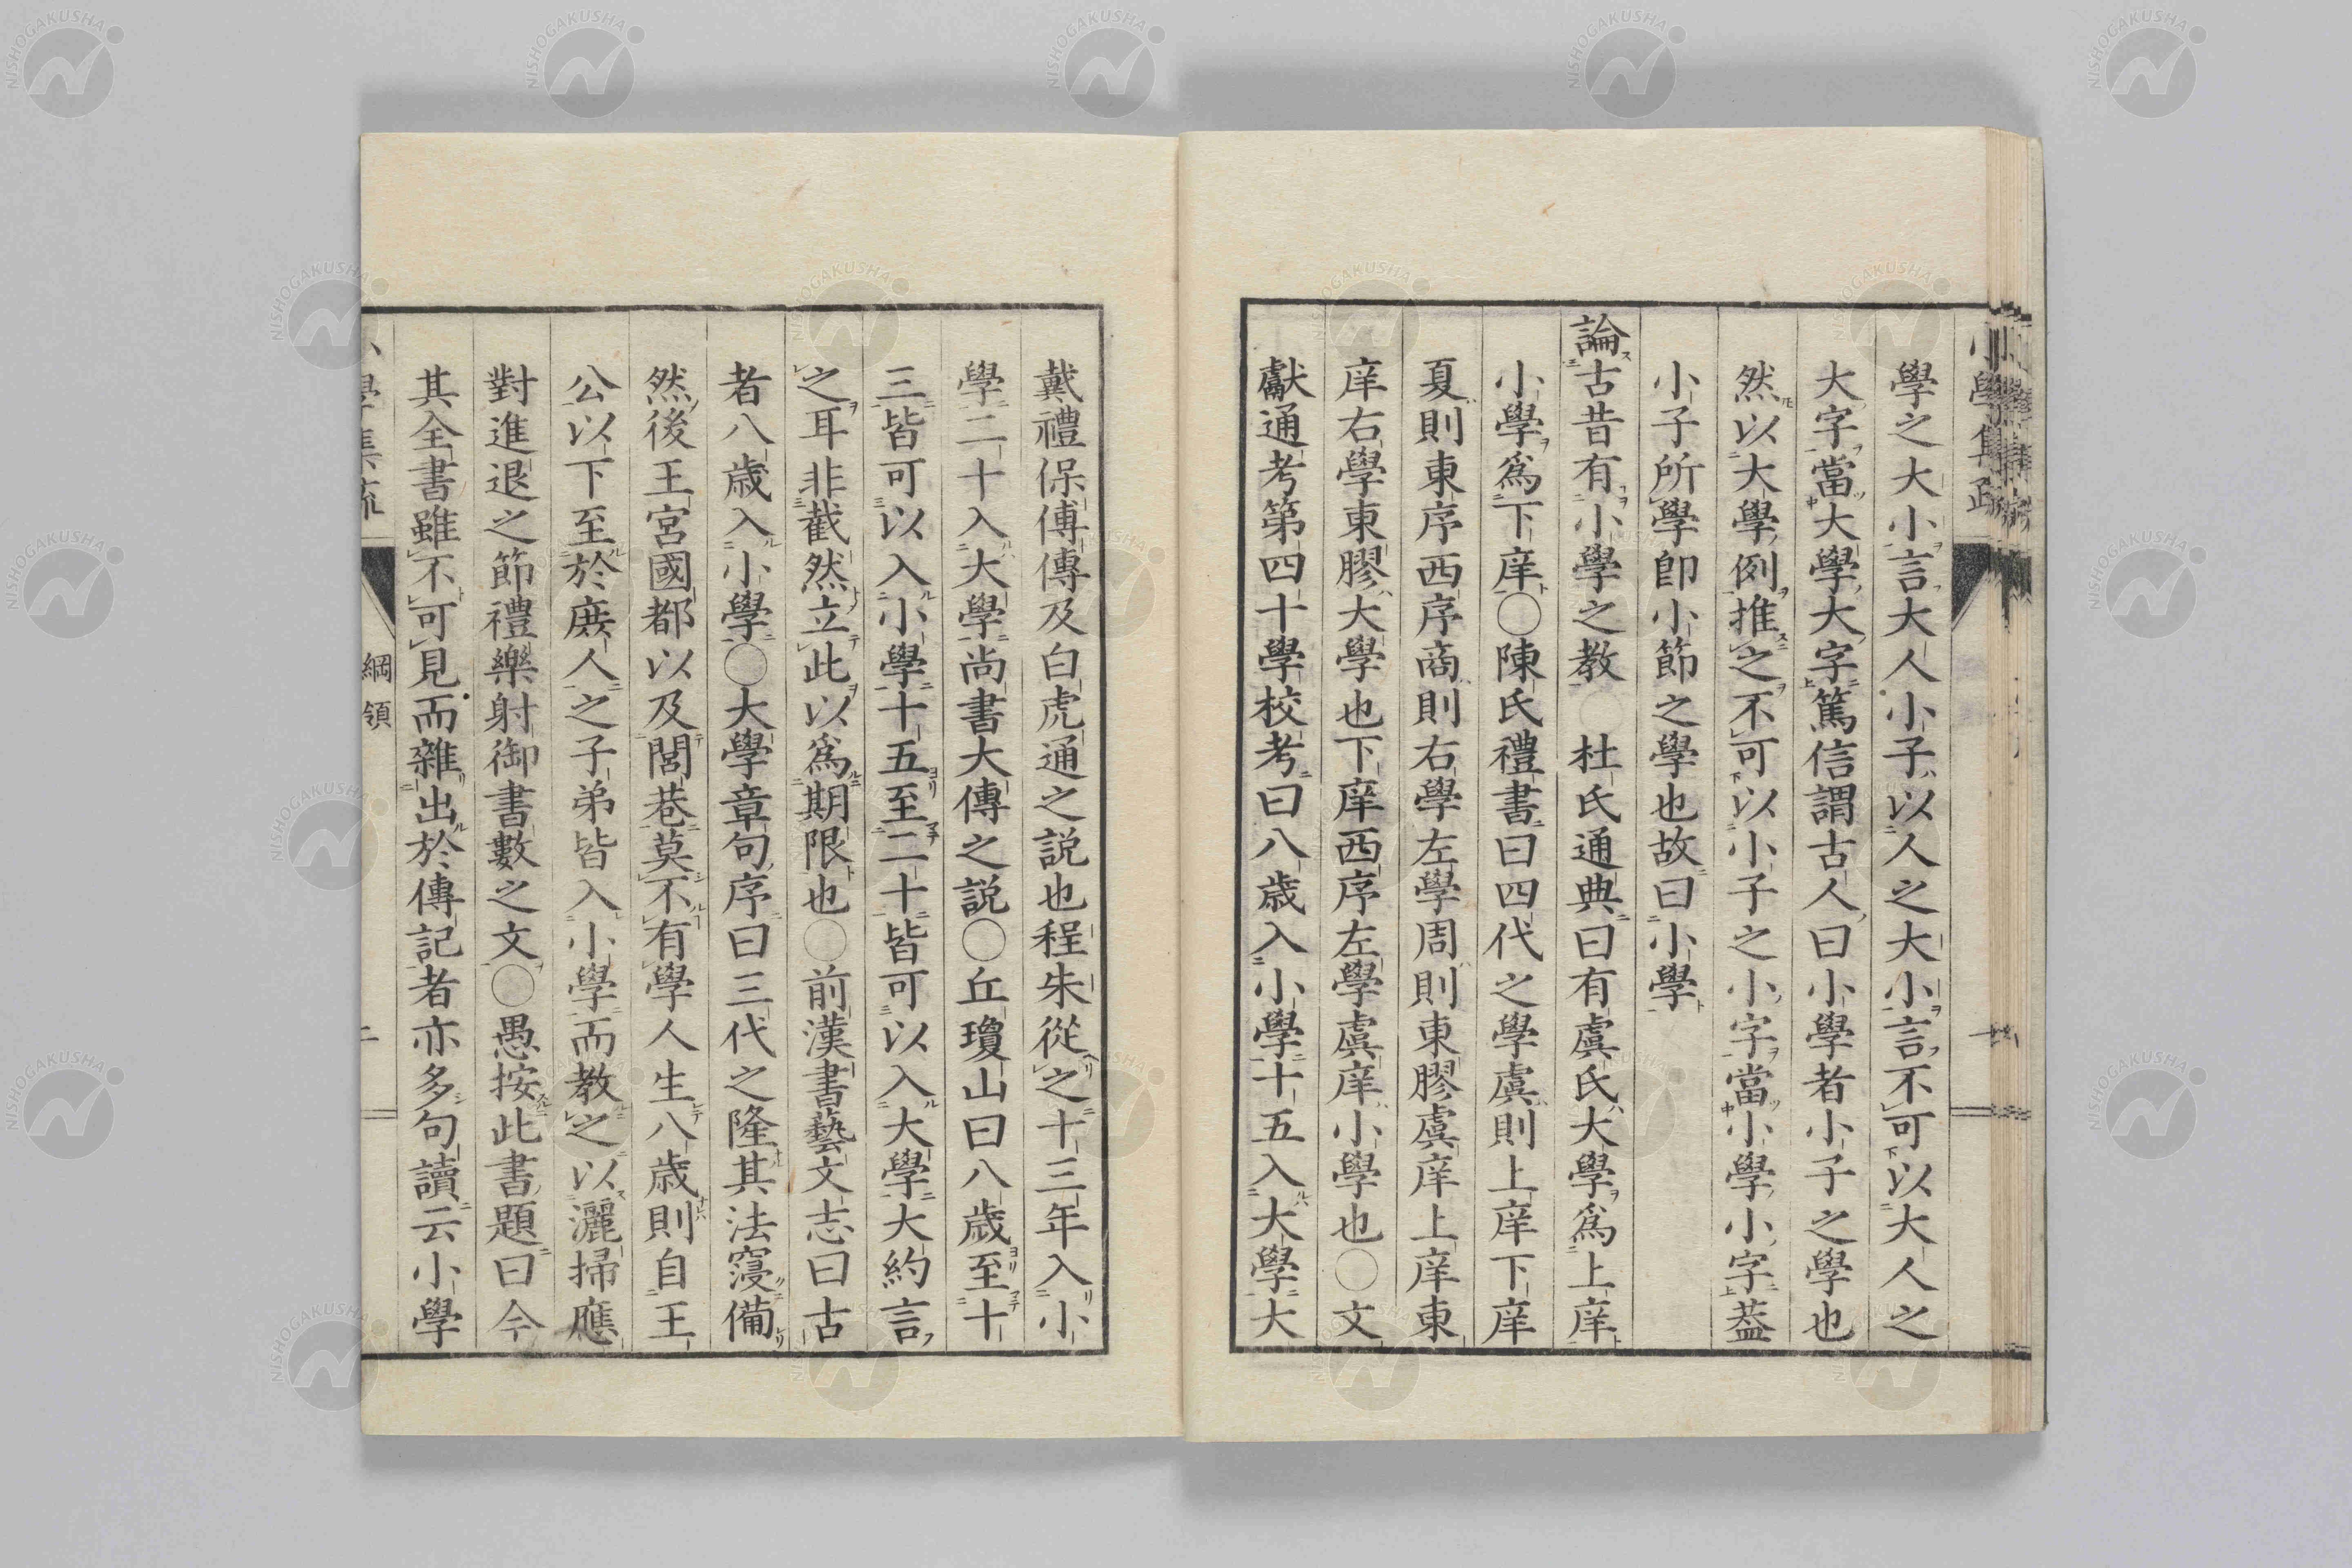 學之大小言大人小子以人之大小言不可以大人之
大字當大學大字篤信謂古人曰小學者小子之學也
然以大學例推之不可以小子之小字當小學小字葢
小子所學卽小節之學也故曰小學
論古昔有小學之教 杜氏通典曰有虞氏大學爲上庠
小學爲下庠○陳氏禮書曰四代之學虞則上庠下庠
夏則東序西序商則右學左學周則東膠虞庠上庠東
庠右學東膠大學也下庠西序左學虞庠小學也○文
獻通考第四十學校考曰八歲入小學十五入大學大
戴禮保傅傳及白虎通之說也程朱從之十三年入小
學二十入大學尚書大傳之說○丘瓊山曰八歲至十
三皆可以入小學十五至二十皆可以入大學大約言
之耳非截然立此以爲期限也○前漢書藝文志曰古
者八歲入小學○大學章句序曰三代之隆其法寖備
然後王宮國都以及閭巷莫不有學人生八歲則自王
公以下至於庶人之子弟皆入小學而教之以灑掃應
對進退之節禮樂射御書數之文○愚按此書題曰今
其全書雖不可見而雜出於傳記者亦多句讀云小學
小學集疏 綱領 二
NISHOGAKUSHA